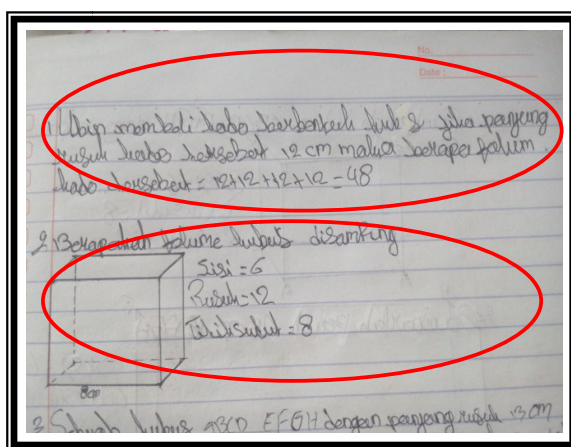 No.
Date:
1. Ubin membeli kado berbentuk kubus jika panjang
rusuk kado tersebut 12 cm maka berapa folium
kado tersebut = 12+12+12+12 = 48
2. Berapakah folume kubus disamping
Sisi = 6
Rusuk = 12
Titik sudut = 8
8cm
3. Sebuah kubus ABCD EFGH dengan panjang rusuk 13 cm